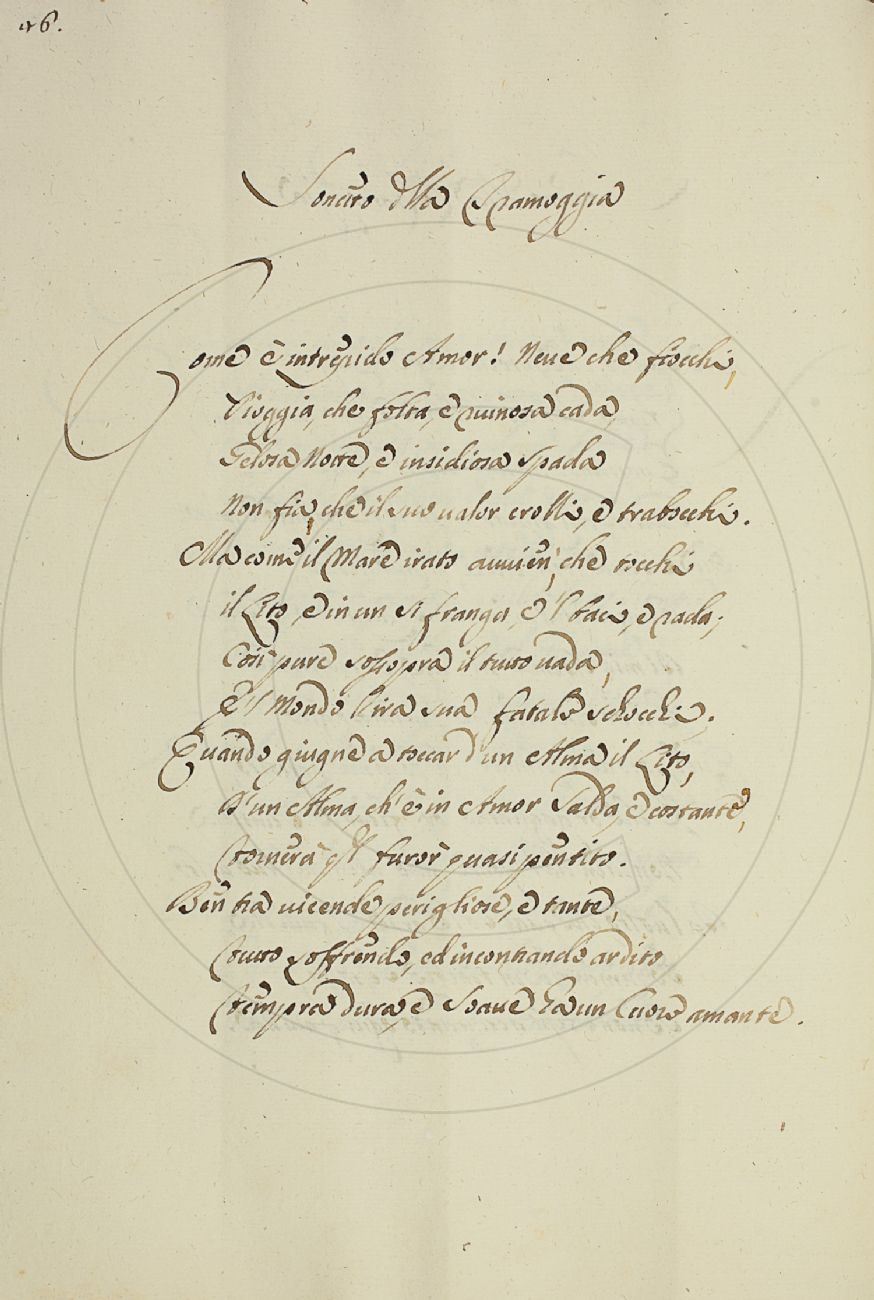 46.
Sonetto della Tramoggia
Come è intrepido Amor! Neue che fiocchi,
Pioggia, che folta, e ruinosa cada,
Gelosa Notte, e insidiosa spada
Non fia, che il suo ualor crolli, e trabocchi.
Ma come il Mare irato auuien, che tocchi
il Lito, e in un si frange, e 'l baci, e rada;
Così pure sossopra il tutto uada,
E 'l Mondo l'ira sua fatale scocchi.
Quando giugne a toccar d'un Alma il Lito,
D'un Alma, ch' è in Amor salda, e costante,
Tornerà quel furor quasi pentito.
Ben tra uicende perigliose, e tante,
Tutto soffrendo, ed incontrando ardito
Tempra dura, e soaue ha un Cuore amante.